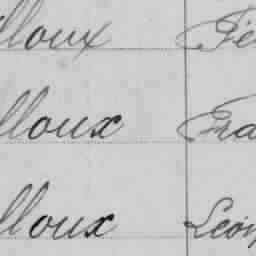 lloux Fé
lloux Fra
lloux Léon